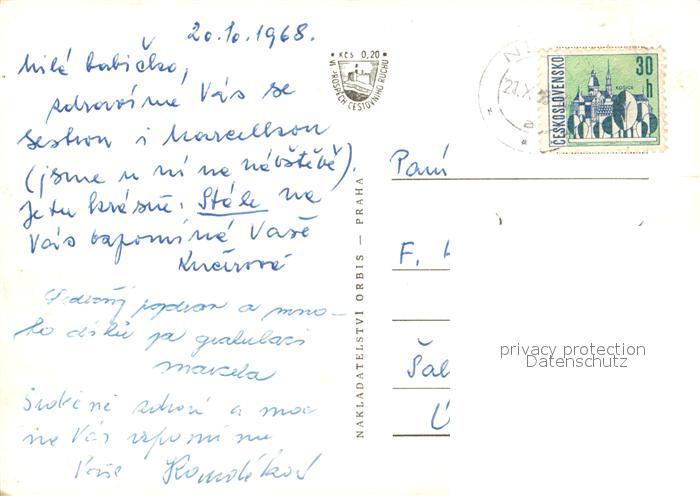 20.10.1968.
Milá babičko,
zdravíme Vás se
sestrou i Marcelkou
(jsme u ní na návštěvě).
Je tu krásně. Stále na
Vás vzpomíná Vaše
Kučírová
Srdečný pozdrav a mno-
ho díků za gratulaci
Marcela
Srdečně zdraví a moc
na Vás vzpomíná
Vaše
KČS 0,20
VE PROSPĚCH CESTOVNÍHO RUCHU
NAKLADATELSTVÍ ORBIS — PRAHA
21.X.
ČESKOSLOVENSKO
30 h
KOŠICE
Paní
F.
Šal
privacy protection
Datenschutz